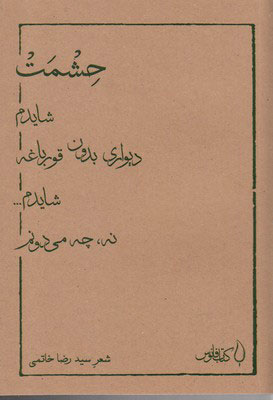 حِشْمَتْ
شایدم
دیواری بدون قورباغه
شایدم...
نه، چه می‌دونم
شعرِ سید رضا خاتمی
کتاب فانوس